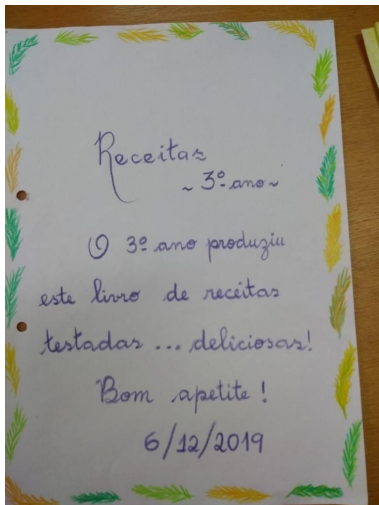 Receitas
~ 3º ano ~
O 3º ano produziu
este livro de receitas
testadas ... deliciosas!
Bom apetite!
6/12/2019